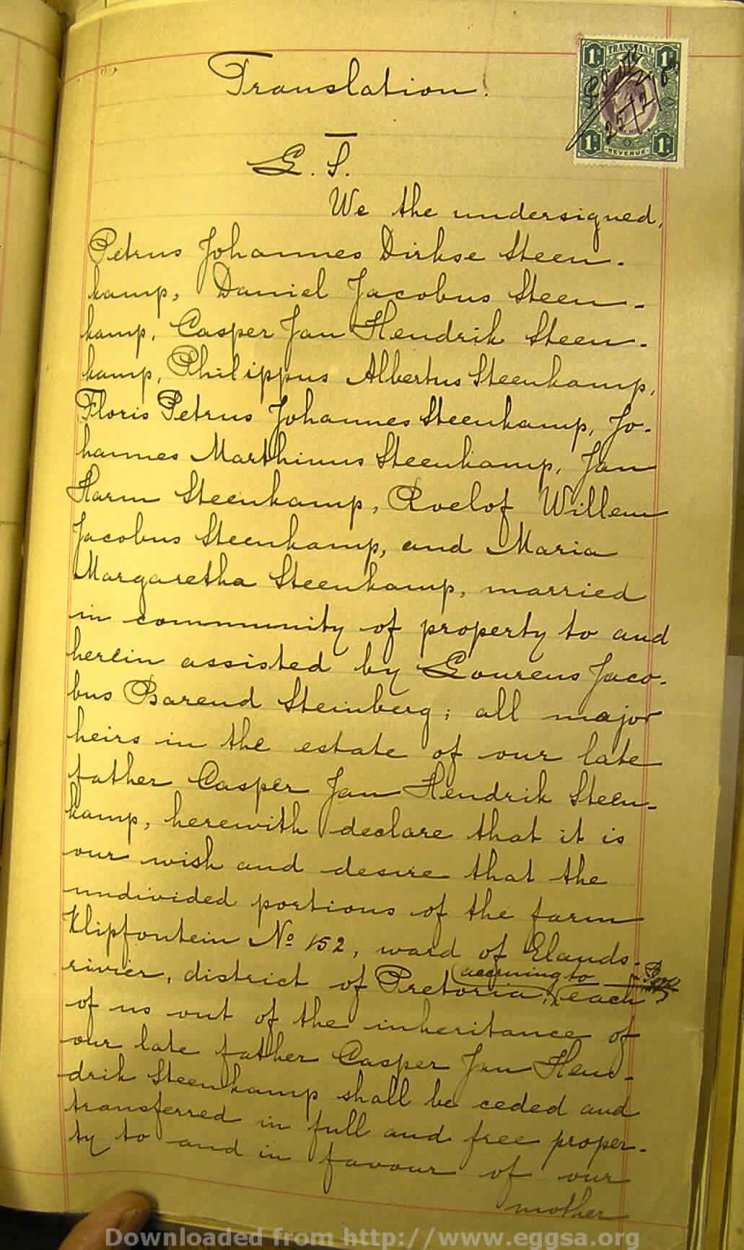 Translation.
G. S.
We the undersigned,
Petrus Johannes Dirkse Steen-
kamp, Daniel Jacobus Steen-
kamp, Casper Jan Hendrik Steen-
kamp, Philippus Albertus Steenkamp,
Floris Petrus Johannes Steenkamp, Jo-
hannes Marthinus Steenkamp, Jan
Harm Steenkamp, Roelof Willem
Jacobus Steenkamp, and Maria
Margaretha Steenkamp, married
in community of property to and
herein assisted by Lourens Jaco-
bus Barend Steinberg; all major
heirs in the estate of our late
father Casper Jan Hendrik Steen-
kamp, herewith declare that it is
our wish and desire that the
undivided portions of the farm
Klipfontein No 152, ward of Elands-
rivier, district of Pretoria, accruing to each
of us out of the inheritance of
our late father Casper Jan Hen-
drik Steenkamp shall be ceded and
transferred in full and free proper-
ty to and in favour of our
mother
TRANSVAAL
1/-
1/-
25/2
1/-
1/-
REVENUE
Downloaded from http://www.eggsa.org